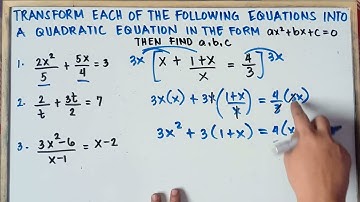 TRANSFORM EACH OF THE FOLLOWING EQUATIONS INTO
A QUADRATIC EQUATION IN THE FORM ax²+bx+c=0
THEN FIND a,b,c
1. 2x²/5 + 5x/4 = 3
2. 2/t + 3t/2 = 7
3. 3x²-6/x-1 = x-2
3x [x + 1+x/x = 4/3] 3x
3x(x) + 3x(1+x/x) = 4/3(3x)
3x² + 3(1+x) = 4(x